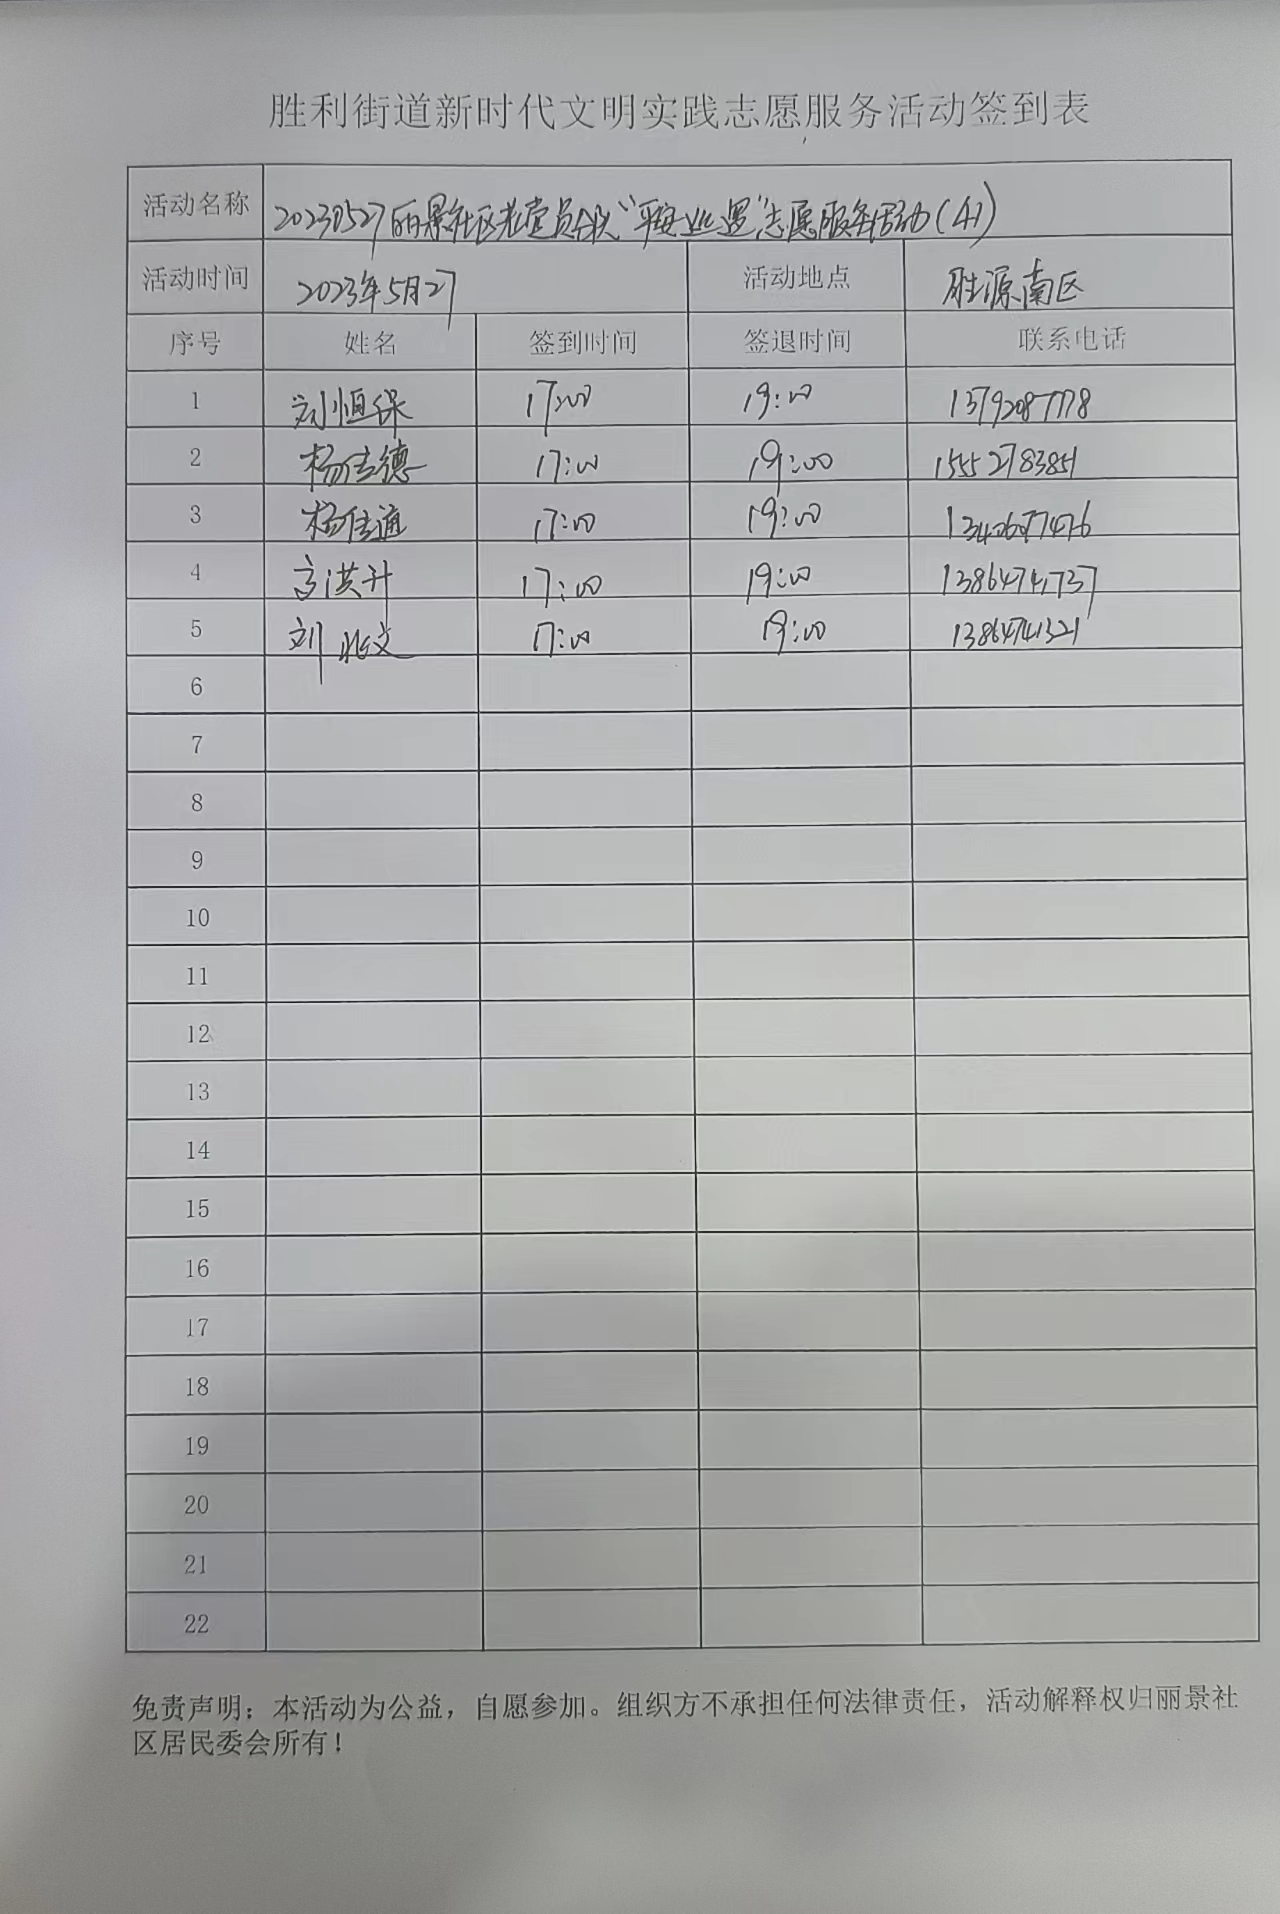 胜利街道新时代文明实践志愿服务活动签到表
活动名称 20230527丽景社区老党员合队“平安巡逻”志愿服务活动(41)
活动时间 2023年5月27 活动地点 胜源南区
序号 姓名 签到时间 签退时间 联系电话
1 刘恒保 17:00 19:00 13792087778
2 杨传德 17:00 19:00 15552783851
3 杨传通 17:00 19:00 13406077476
4 高洪升 17:00 19:00 13864741737
5 刘兆文 17:00 19:00 13864741321
6
7
8
9
10
11
12
13
14
15
16
17
18
19
20
21
22
免责声明：本活动为公益，自愿参加。组织方不承担任何法律责任，活动解释权归丽景社
区居民委会所有！